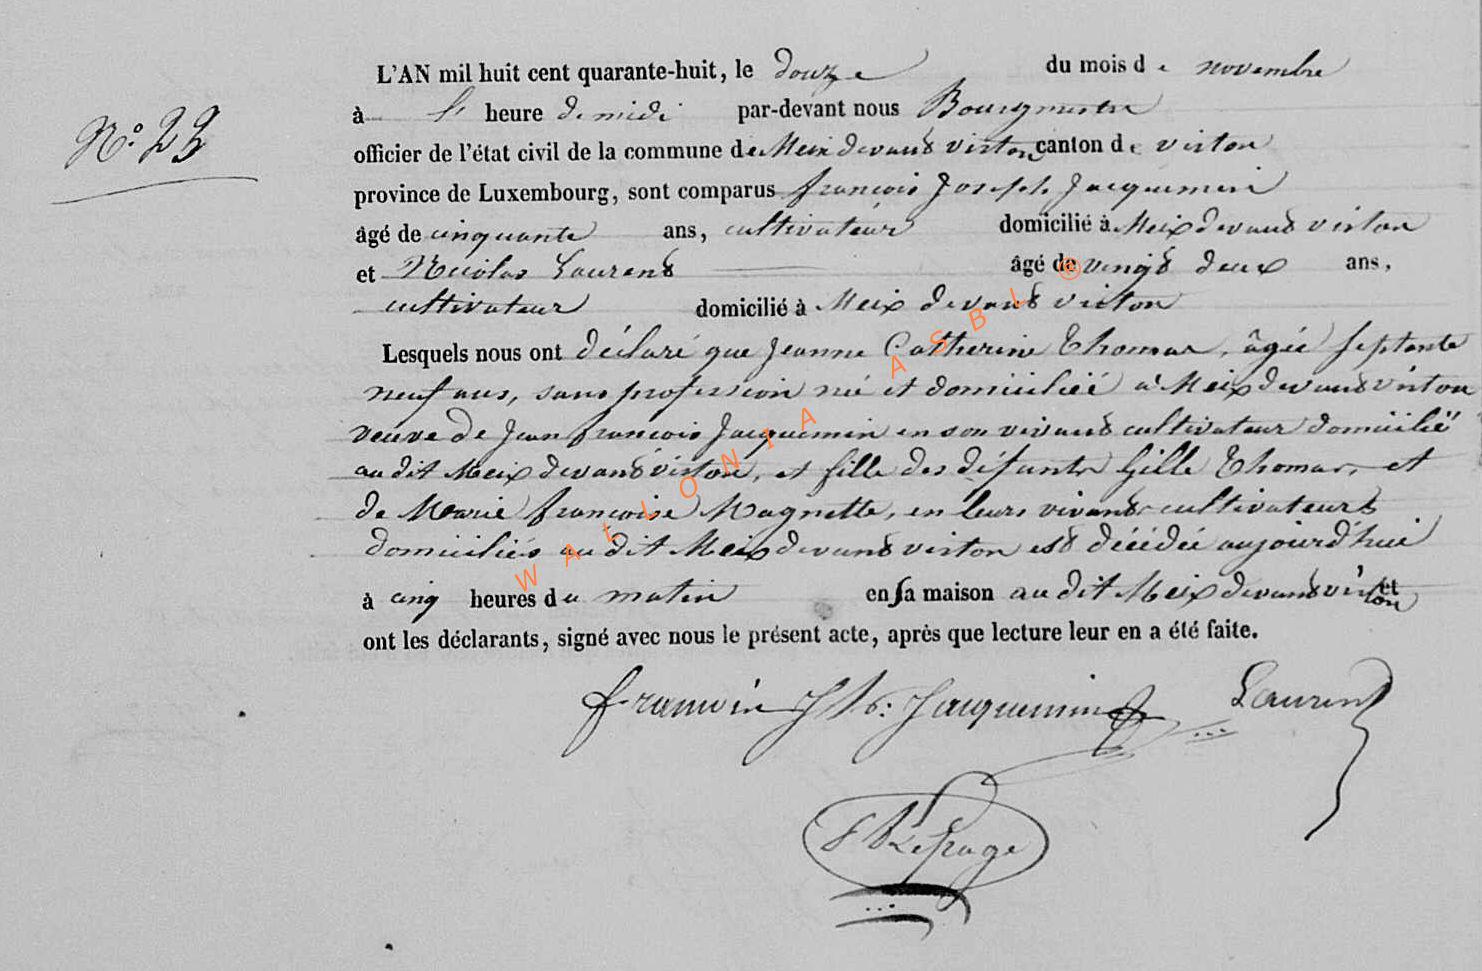 N.o 23
L'AN mil huit cent quarante-huit, le douze du mois de novembre
à l' heure de midi par-devant nous Bourgmestre
officier de l'état civil de la commune de Meix devant virton canton de virton
province de Luxembourg, sont comparus françois Joseph Jacquemin
âgé de cinquante ans, cultivateur domicilié à Meix devant virton
et Nicolas Laurent âgé de vingt deux ans,
cultivateur domicilié à Meix devant virton
Lesquels nous ont déclaré que Jeanne Catherine Thomas, âgée septante
neuf ans, sans profession née et domiciliée à Meix devant virton
veuve de Jean françois Jacquemin en son vivant cultivateur domicilié
au dit Meix devant virton, et fille des défunts Gille Thomas, et
de Marie françoise Magnette, en leurs vivants cultivateurs
domiciliés au dit Meix devant virton est décédée aujourd'hui
à cinq heures du matin en sa maison au dit Meix devant virton et
ont les déclarants, signé avec nous le présent acte, après que lecture leur en a été faite.
françois Jh: Jacquemin Laurent
Lepage
WALLONIA ASBL ®